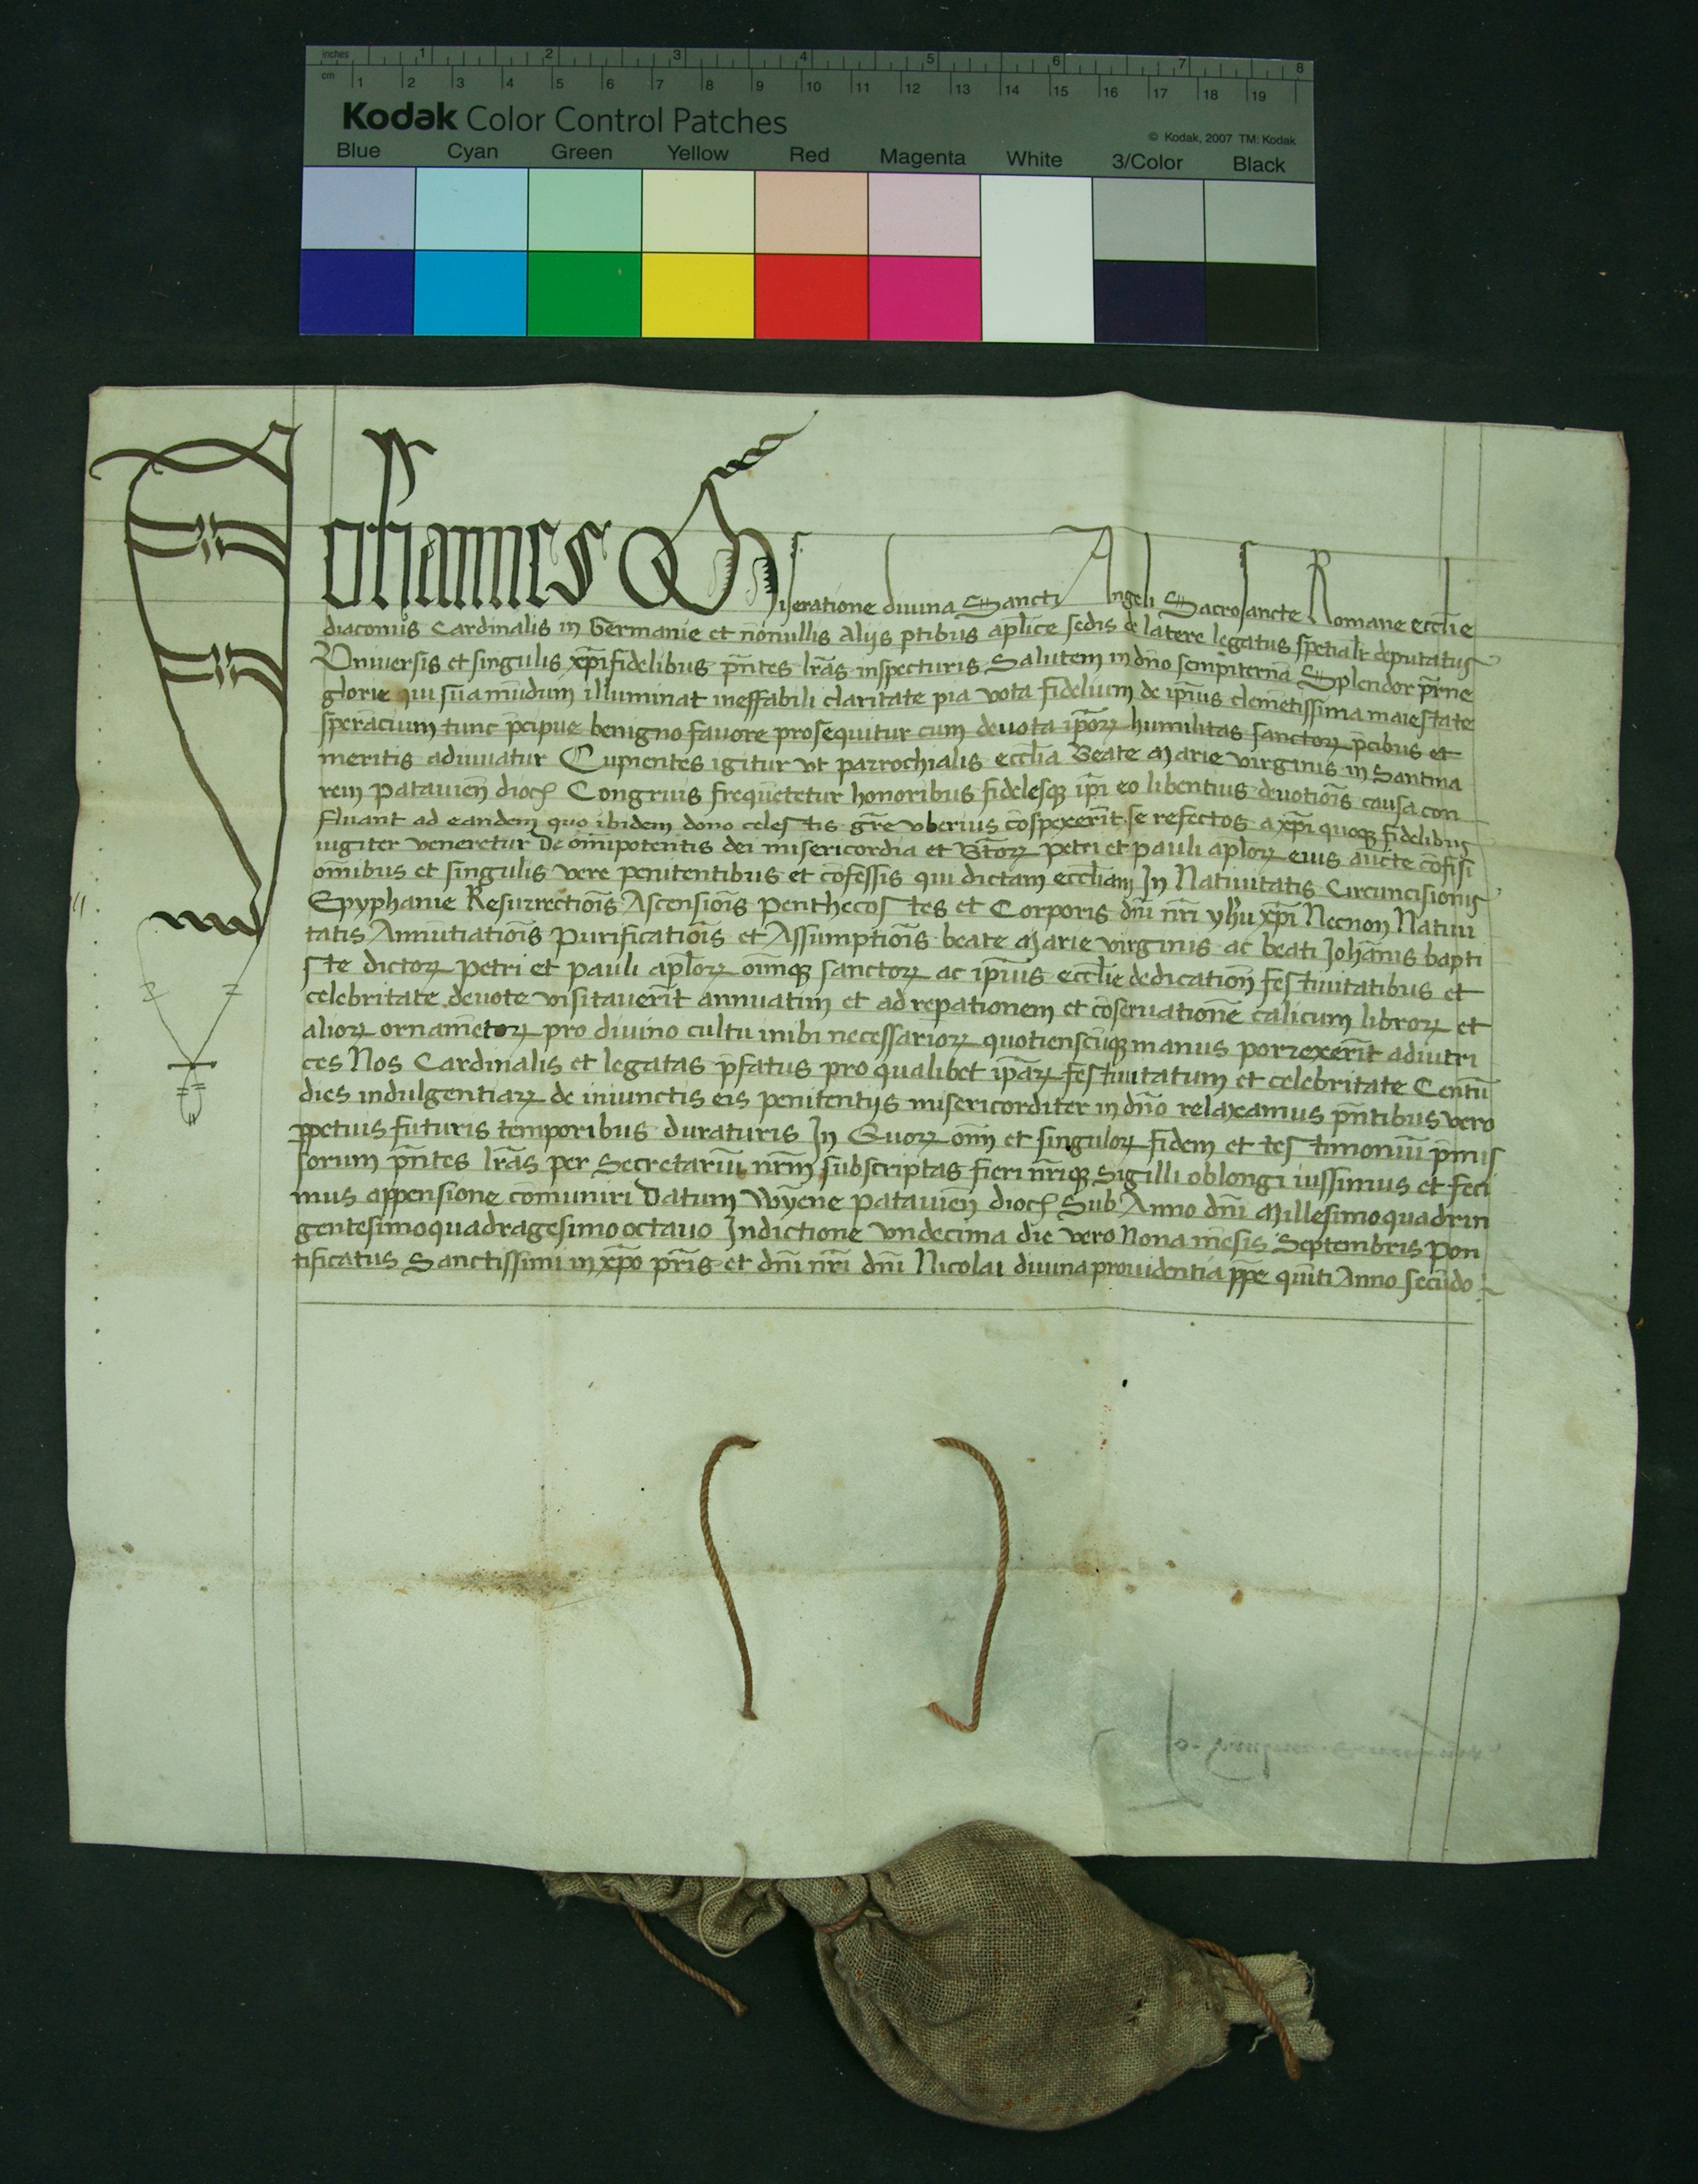 inches 1 2 3 4 5 6 7 8
cm 1 2 3 4 5 6 7 8 9 10 11 12 13 14 15 16 17 18 19
Kodak Color Control Patches
© Kodak, 2007 TM: Kodak
Blue Cyan Green Yellow Red Magenta White 3/Color Black
Johannes Miseratione divina Sancti Angeli Sacrosancte Romane eccl̄ie
diaconus Cardinalis in Germanie et nōnullis Alijs ꝑtibus apl̄ice sedis de latere legatus spetialr̄ deputatus
Vniversis et singulis xp̄ifidelibus pn̄tes lr̄as inspecturis Salutem in dn̄o sempiternā Splendor pr̄ne
glorie qui sua mūdum illuminat ineffabili claritate pia vota fidelium de ip̄ius clemētissima maiestate
sperācium tunc p̄cipue benigno favore prosequitur cum devota ip̄oꝝ humilitas sanctoꝝ p̄cibus et
meritis adiuuatur Cupientes igitur vt parrochialis eccl̄ia Beate Marie virginis in Santina
rein pataviēn dioc̄ Congruis frequētetur honoribus fidelesqꝫ ip̄i eo libentius devotiōis causa con
fluant ad eandem quo ibidem dono celestis gr̄e vberius cōspexerīt se refectos a xp̄i quoqꝫ fidelibus
iugiter veneretur De om̄ipotentis dei misericordia et Bt̄oꝝ petri et pauli apl̄oꝝ eius auc̄te cōfisi
om̄ibus et singulis vere penitentibus et cōfessis qui dictam eccl̄iam In Natiuitatis Circuncisionis
Epyphanie Resurrectiōis Ascensiōis penthecostes et Corporis dn̄i nr̄i yh̄u xp̄i Necnon Natiui
tatis Annūtiatiōis Purificatiōis et Assumptiōis beate Marie virginis ac beati Johān̄is bapti
ste dictoꝝ petri et pauli apl̄oꝝ oīmqꝫ sanctoꝝ ac ip̄ius eccl̄ie dedicatiōn festiuitatibus et
celebritate devote visitaverīt annuatim et ad reꝑationem et cōseruationē calicum libroꝝ et
alioꝝ ornamētoꝝ pro divino cultu inibi necessarioꝝ quotienscūqꝫ manus porrexerīt adiutri
ces Nos Cardinalis et legatas p̄fatus pro qualibet ip̄aꝝ festiuitatum et celebritate Centū
dies indulgentiaꝝ de iniunctis eis penitentijs misericorditer in dn̄o relaxamus pn̄tibus vero
ꝑpetuis futuris temporibus duraturis In Quoꝝ om̄ et singuloꝝ fidem et testimoniū p̄mis
sorum pn̄tes lr̄as per Secretariū nr̄m subscriptas fieri nr̄iqꝫ Sigilli oblongi iussimus et feci
mus appensione cōmuniri Datum wyēne pataviēn dioc̄ Sub Anno dn̄i Millesimoquadrin
gentesimoquadragesimooctavo Indictione vndecima die vero Nona mēsis Septembris Pon
tificatus Sanctissimi in xp̄o pr̄is et dn̄i nr̄i dn̄i Nicolai divina prouidentia pp̄e quīti Anno secūdo